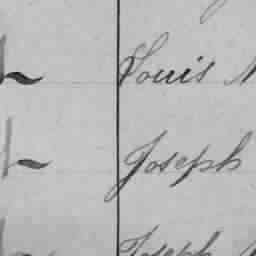 Louis
Joseph
Joseph